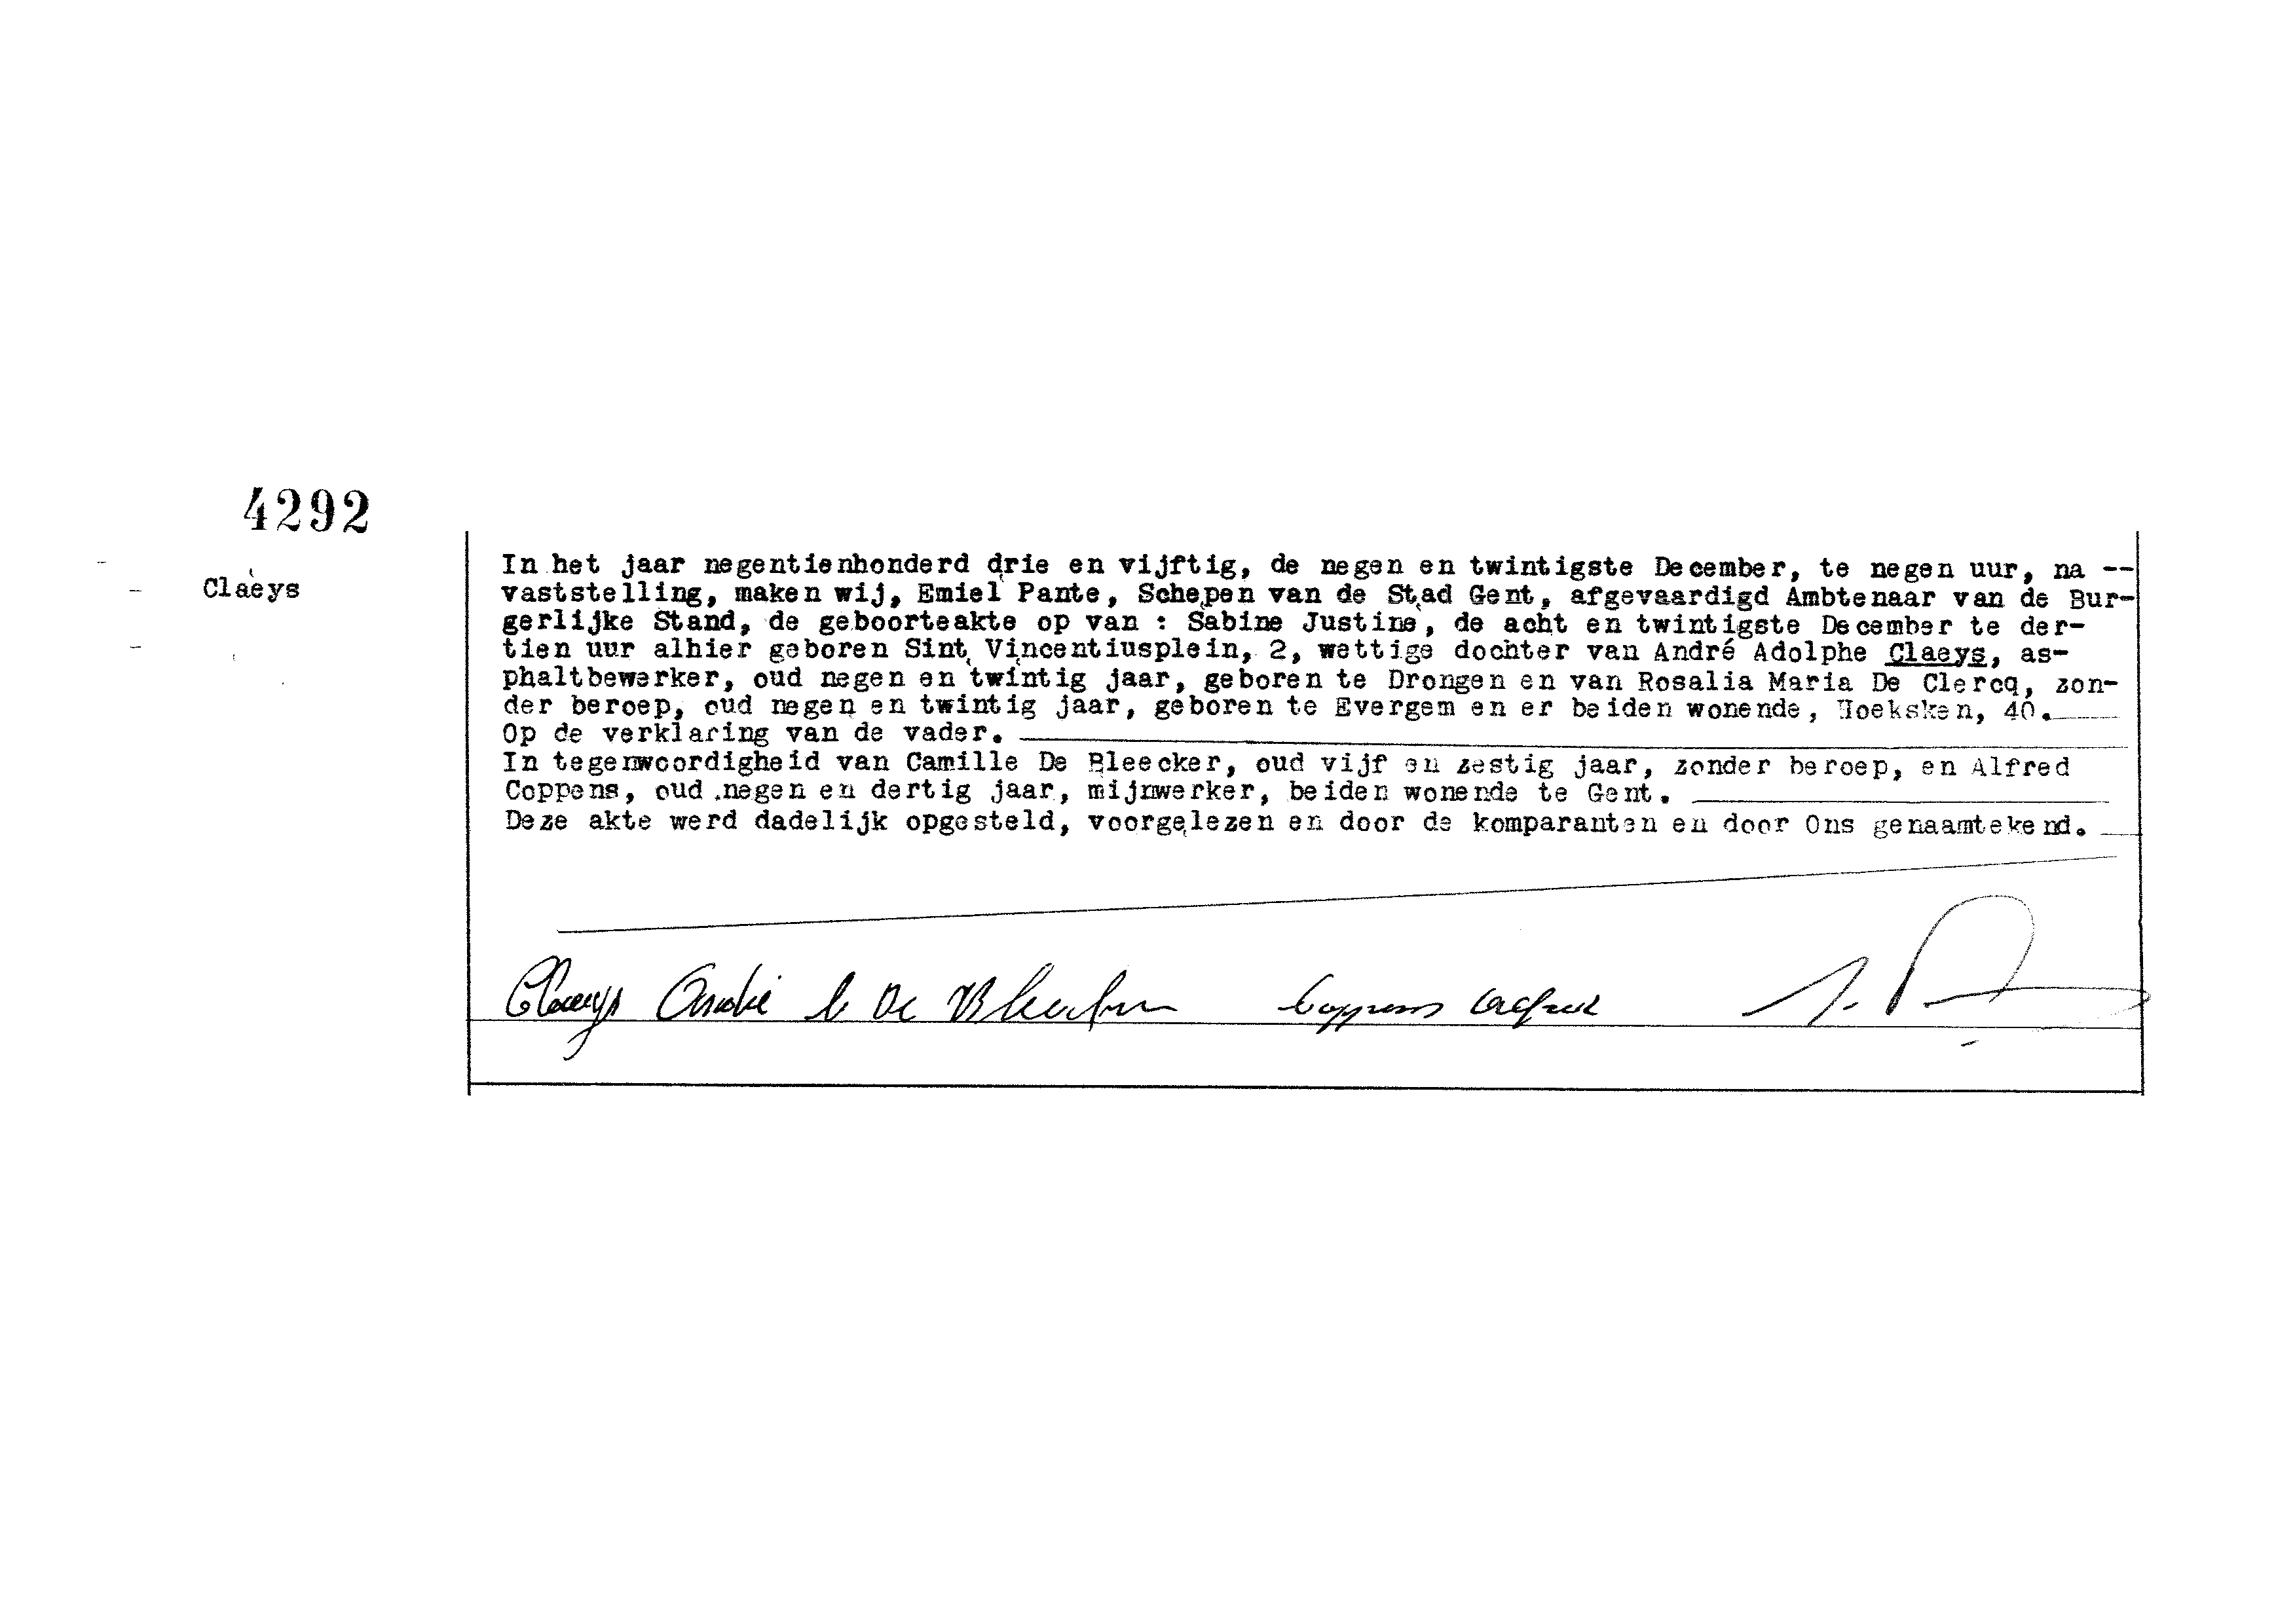 4292
Claeys
In het jaar negentienhonderd drie en vijftig, de negen en twintigste December, te negen uur, na --
vaststelling, maken wij, Emiel Pante, Schepen van de Stad Gent, afgevaardigd Ambtenaar van de Bur-
gerlijke Stand, de geboorteakte op van : Sabine Justine, de acht en twintigste December te der-
tien uur alhier geboren Sint Vincentiusplein, 2, wettige dochter van André Adolphe Claeys, as-
phaltbewerker, oud negen en twintig jaar, geboren te Drongen en van Rosalia Maria De Clercq, zon-
der beroep, oud negen en twintig jaar, geboren te Evergem en er beiden wonende, Hoeksken, 40.
Op de verklaring van de vader.
In tegenwoordigheid van Camille De Bleecker, oud vijf en zestig jaar, zonder beroep, en Alfred
Coppens, oud negen en dertig jaar, mijnwerker, beiden wonende te Gent.
Deze akte werd dadelijk opgesteld, voorgelezen en door de komparanten en door Ons genaamtekend.
Claeys André C De Bleecker Coppens Alfred